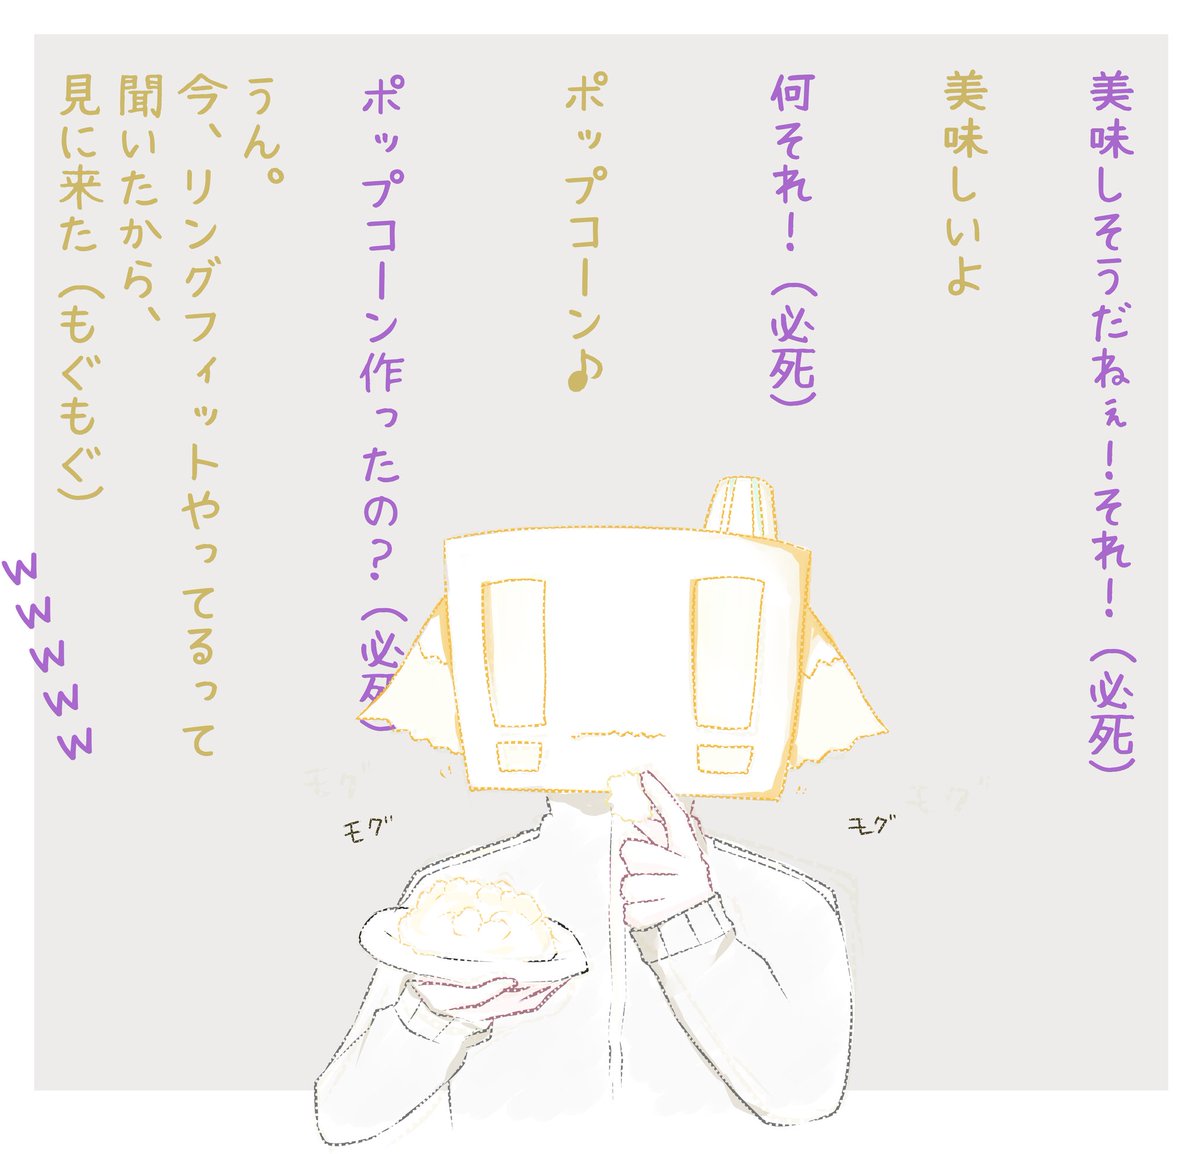 美味しそうだねぇ!それ!(必死)
美味しいよ
何それ!(必死)
ポップコーン♪
ポップコーン作ったの?(必死)
うん。
今、リングフィットやってるって
聞いたから、
見に来た(もぐもぐ)
wwwww
モグ
モグ
モグ
モグ